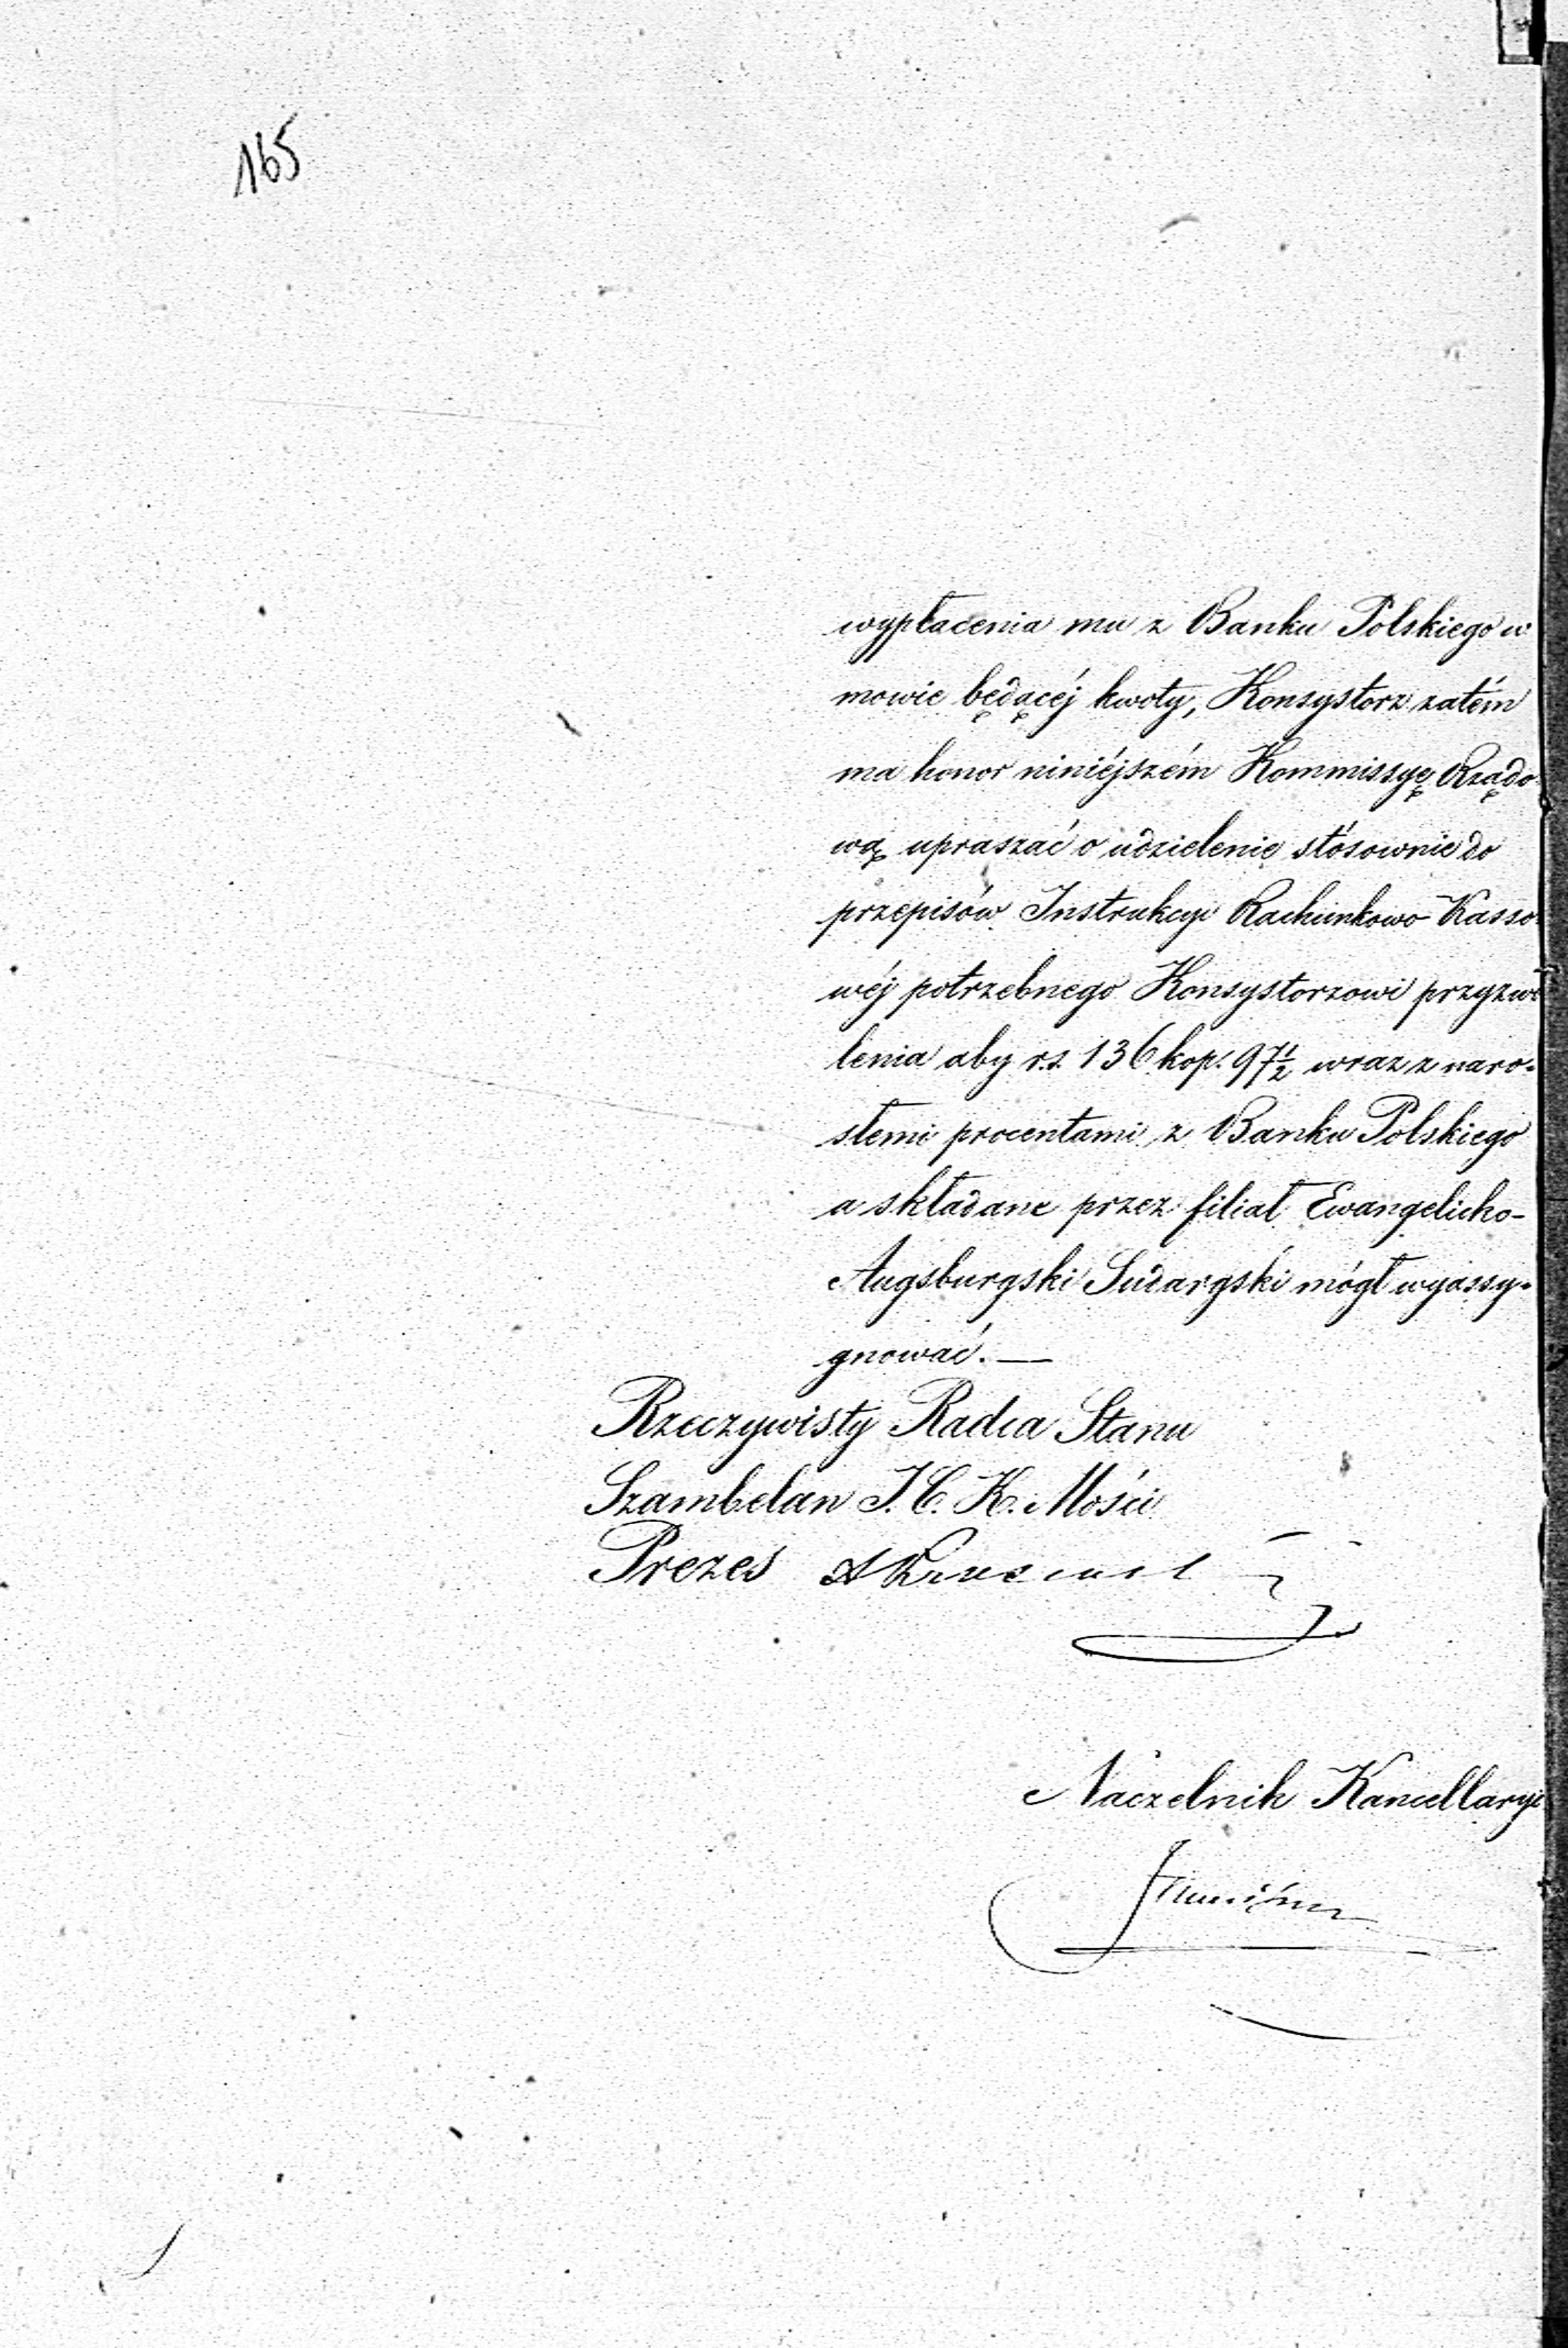 165
wypłacenia mu z Banku Polskiego w
mowie będącéj kwoty, Konsystorz zatém
ma honor niniéjszém Kommissyę Rządo
wą upraszać o udzielenie stósownie do
przepisów Instrukcyi Rachunkowo Kasso
wéj potrzebnego Konsystorzowi przyzwo
lenia aby r.s. 136 kop. 97½ wraz z naro-
słemi procentami z Banku Polskiego
a składane przez filiał Ewangelicko-
Augsburgski Sudargski mógł wyassy-
gnować. —
Rzeczywisty Radca Stanu
Szambelan J. C. K. Mości
Prezes
Naczelnik Kancellaryi